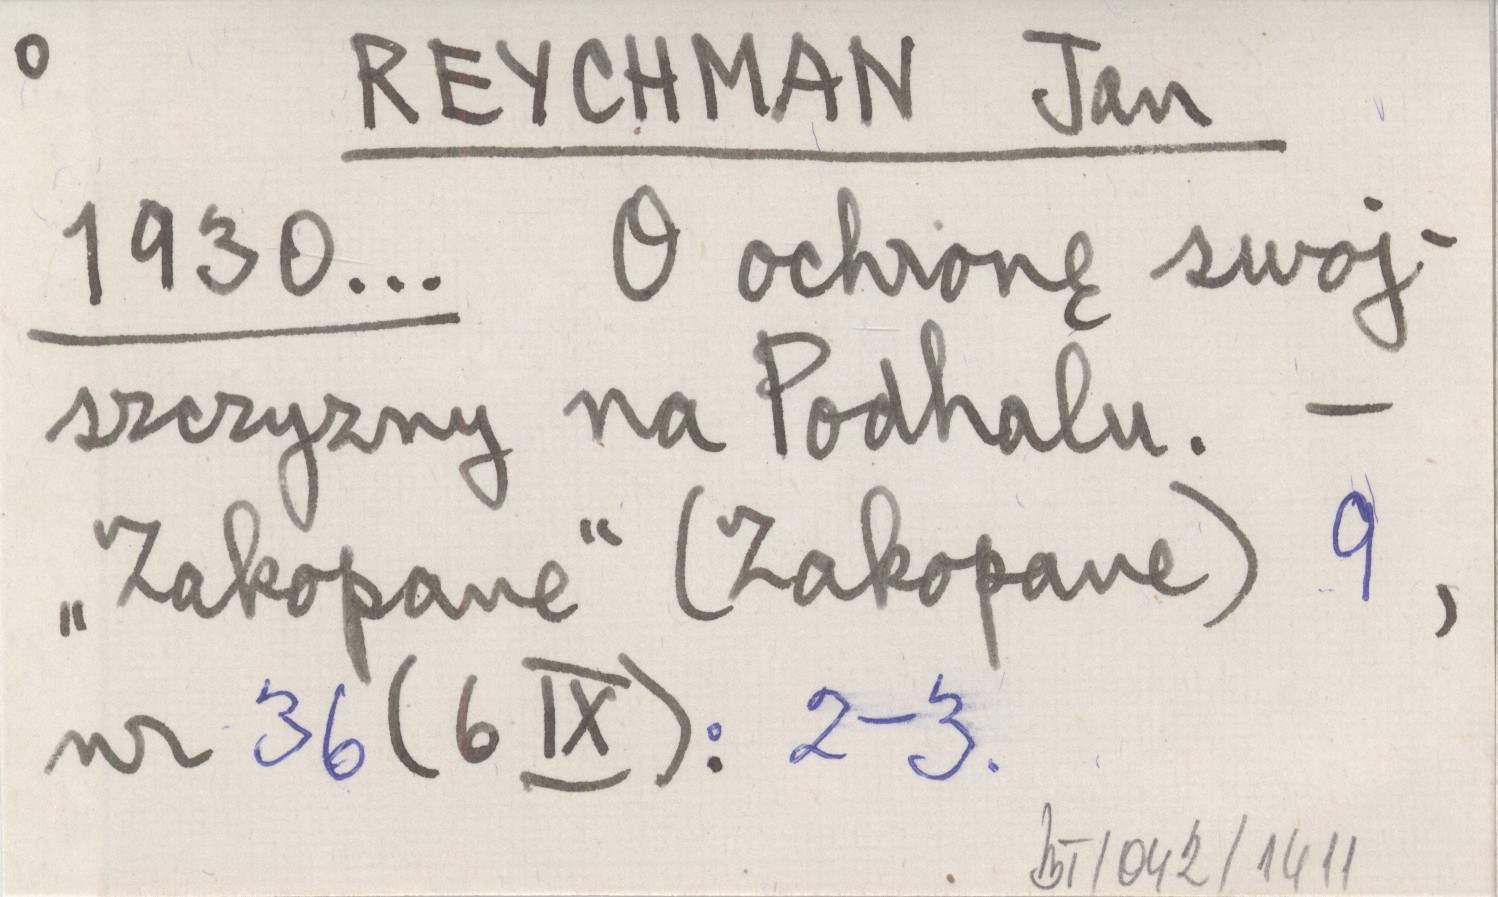 o REYCHMAN Jan
1930... O ochronę swoj-
szczyzny na Podhalu. —
„Zakopane“ (Zakopane) 9,
nr 36 (6 IX): 2-3.
/042/1411